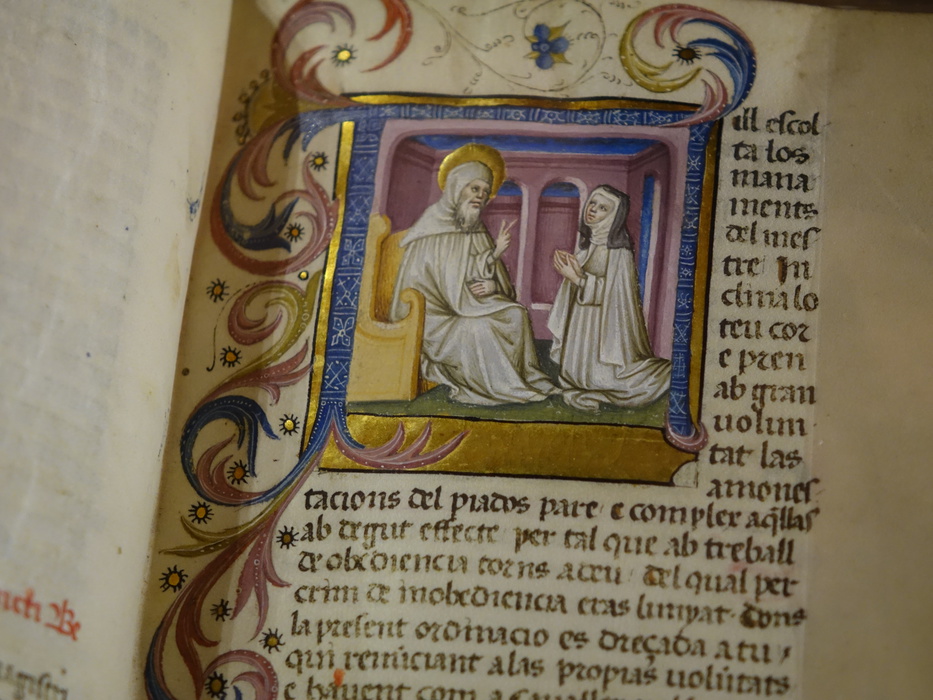 ill escol
ta los
mana
ments
del mes
tre In
clina lo
teu cor
e pren
ab gran
uolun
tat las
amones
tacions del piados pare e complex aq̃llas
ab degut effecte per tal que ab treball
de obediencia torns a deu del qual per
crim de inobediencia eras lunyat dons
la present ordinacio es dreçada a tu
qui renũciant a las propias volũtats
e havent com a Cavaller